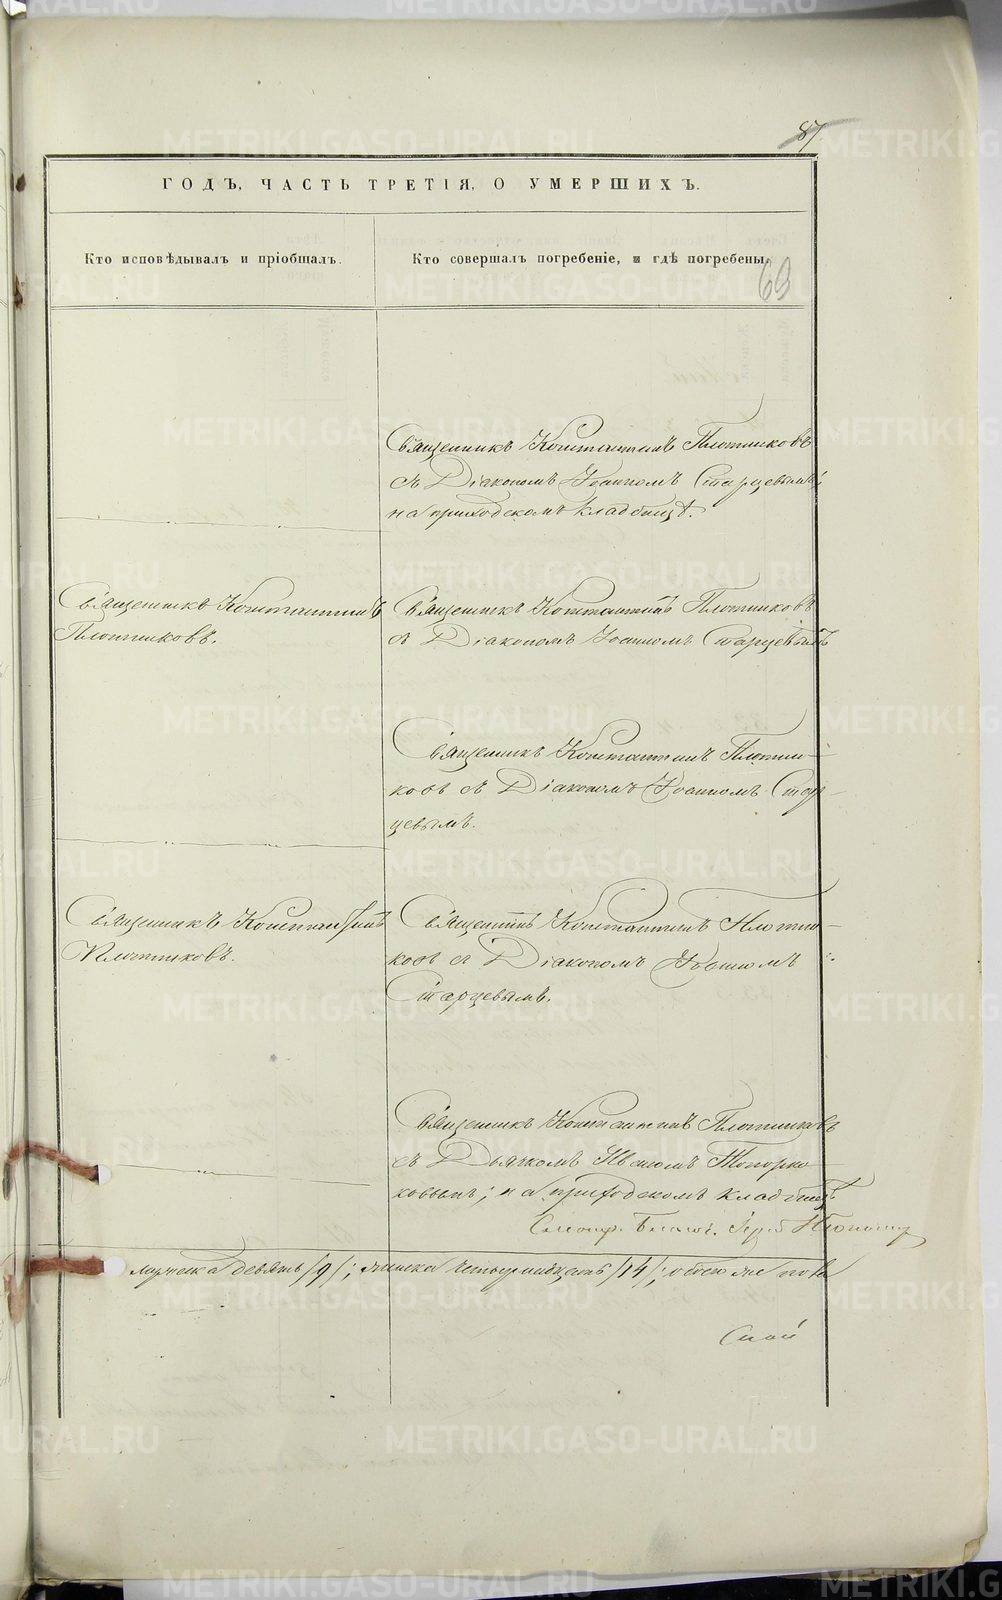 87
ГОДЪ, ЧАСТЬ ТРЕТІЯ, О УМЕРШИХЪ.
Кто исповѣдывалъ и пріобщалъ.
Кто совершалъ погребеніе, и гдѣ погребены.
69
Священникъ Константинъ Плотниковъ
съ Діакономъ Іоанномъ Старцевымъ;
на приходскомъ кладбищѣ.
Священникъ Константинъ
Плотниковъ.
Священникъ Константинъ Плотниковъ
съ Діакономъ Іоанномъ Старцевымъ
Священникъ Константинъ Плотни-
ковъ съ Діакономъ Іоанномъ Стар-
цевымъ.
Священникъ Константинъ
Плотниковъ.
Священникъ Константинъ Плотни-
ковъ съ Діакономъ Іоанномъ
Старцевымъ.
Священникъ Константинъ Плотниковъ
съ Дьячкомъ Топорко-
вымъ; на приходскомъ кладбищѣ
мужеска девять /9/; женска четырнадцать /14/; обоего же пола
METRIKI.GASO-URAL.RU